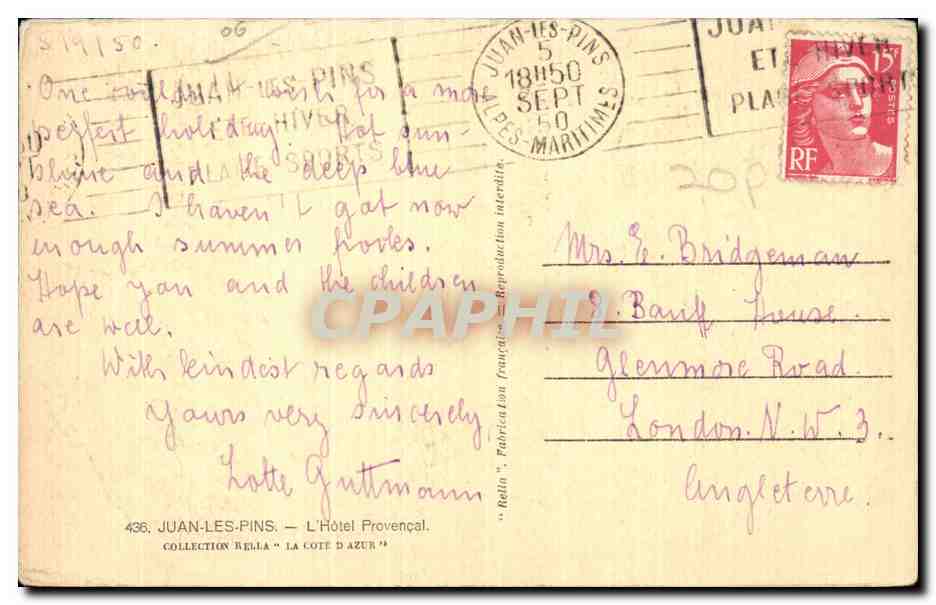 5/9/50.
06
One couldn't wish for a more
perfect holiday. Hot sun-
shine and the deep blue
sea. I haven't got now
enough summer frocks.
Hope you and the children
are well.
With kindest regards
Yours very sincerely,
Lotte Guttmann
436. JUAN-LES-PINS. — L'Hôtel Provençal.
COLLECTION RELLA " LA COTE D'AZUR "
JUAN-LES PINS
HIVER
PLAGE SPORTS
JUAN-LES-PINS
5
18H50
SEPT
50
ALPES-MARITIMES
JUAN
ET HIVER
PLAGE SPORTS
15F
POSTES
RF
20p
" Rella ". Fabrication française — Reproduction interdite.
Mrs. E. Bridgeman
8. Banff House.
Glenmore Road.
London. N. W. 3.
Angleterre.
CPAPHIL